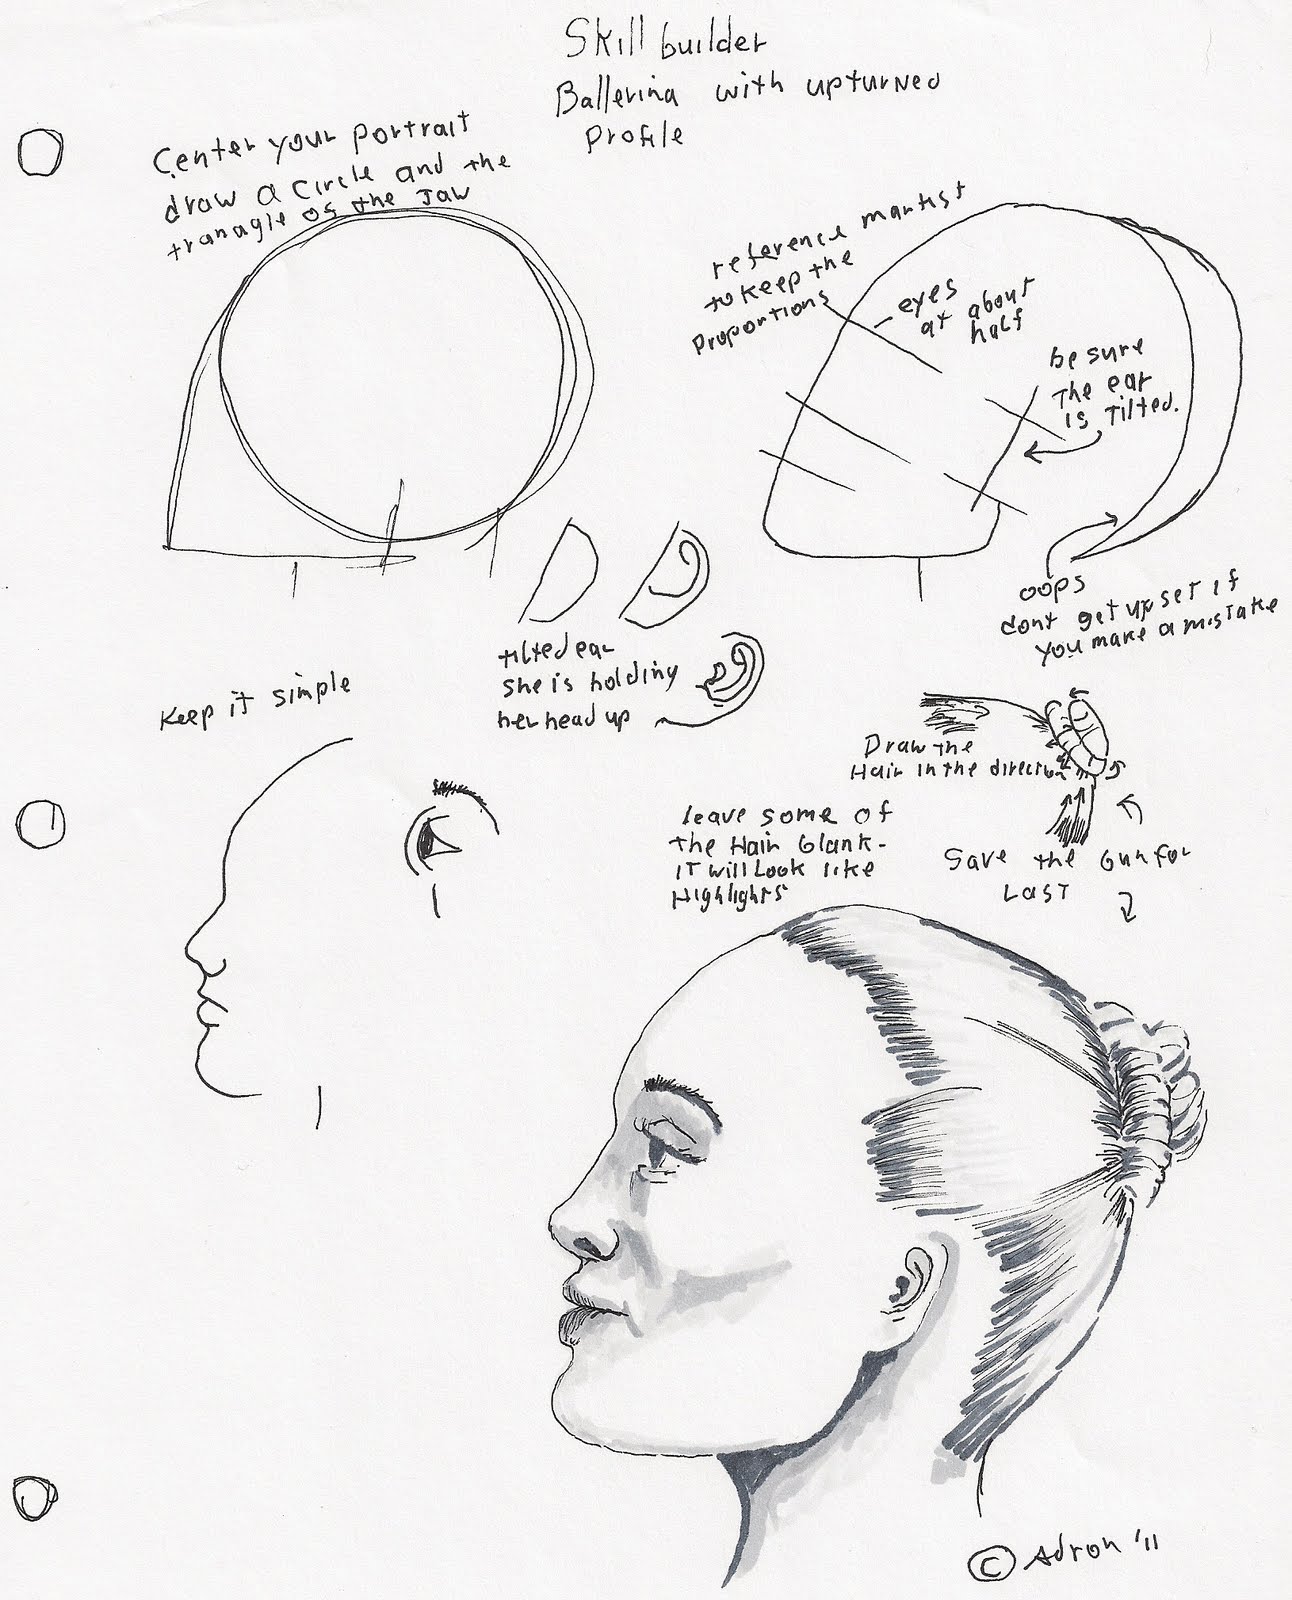 Skill builder
Ballerina with upturned
Profile
Center your portrait
draw a Circle and the
tranagle of the Jaw
reference
to keep the
proportions
eyes
at about
half
be sure
The ear
is Tilted.
oops
dont get upset if
you make a mistake
tilted ear
she is holding
her head up
Keep it simple
Draw the
Hair in the direction
leave some of
the Hair blank-
iT will Look like
Highlights
Save the bun for
LAST
© Adron '11